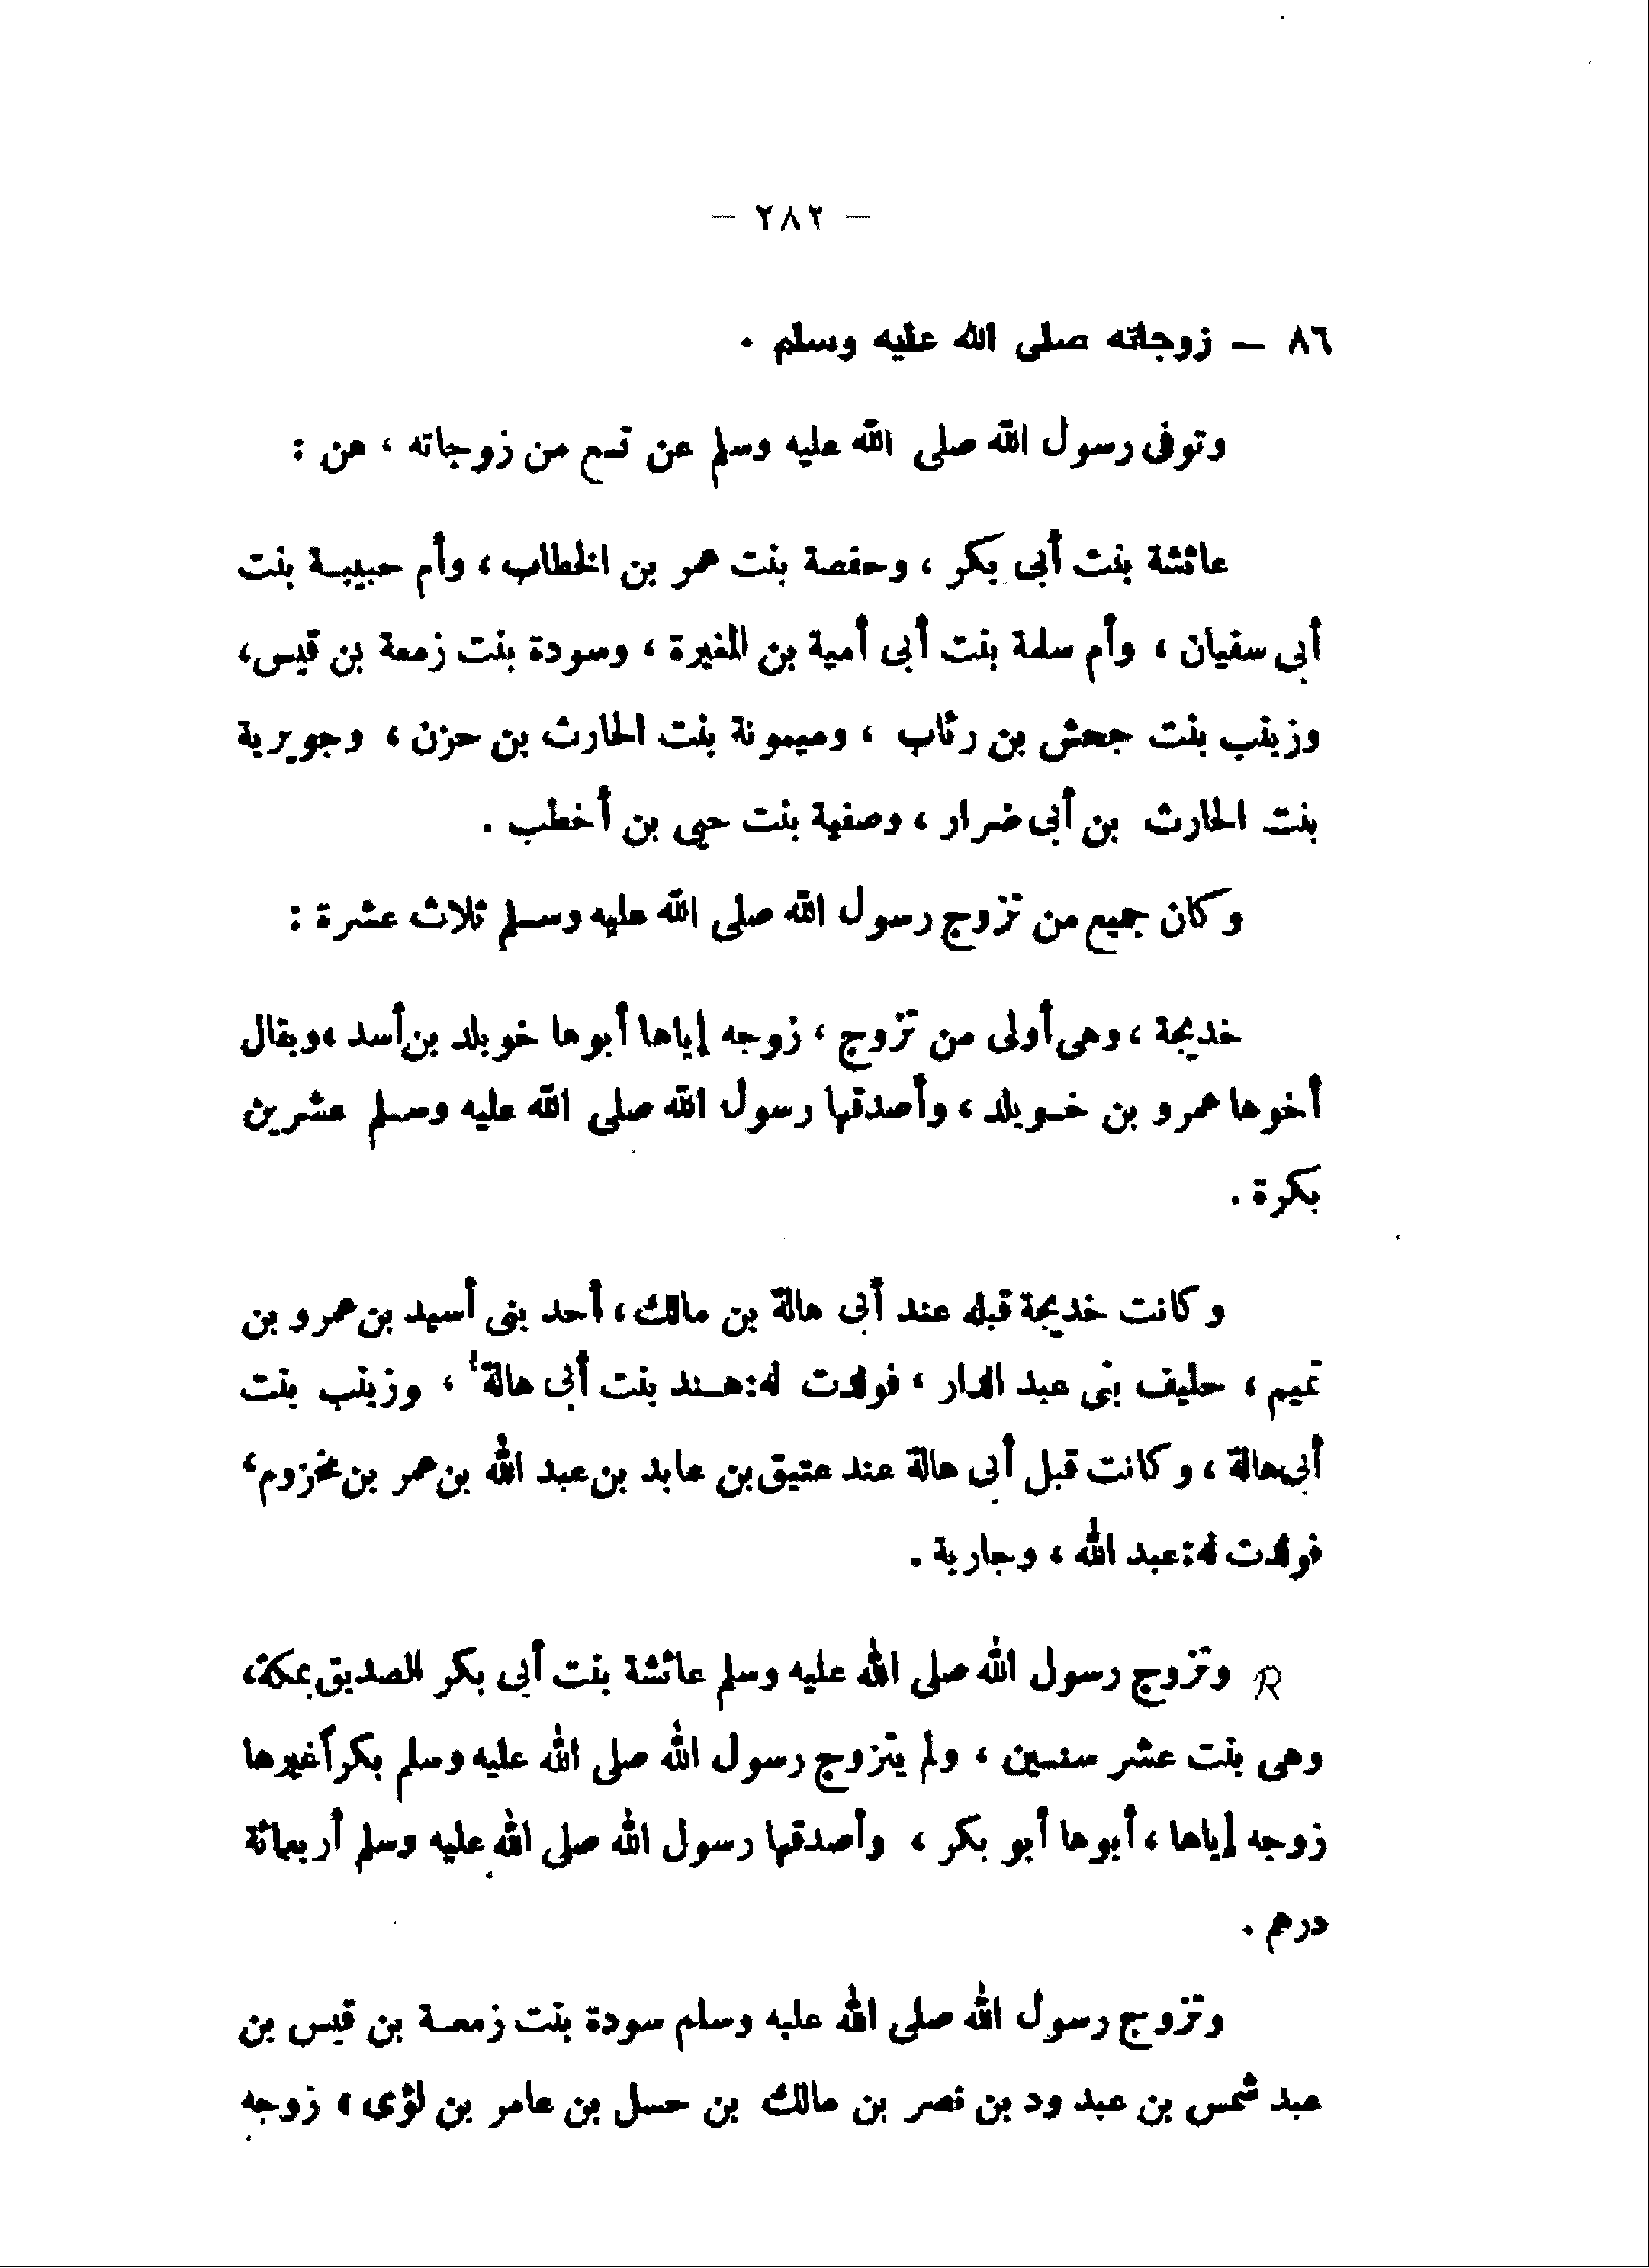 — ٢٨٢ —
٨٦ — زوجاته صلى الله عليه وسلم .
وتوفى رسول الله صلى الله عليه وسلم عن تسع من زوجاته ، هن :
عائشة بنت أبى بكر ، وحفصة بنت عمر بن الخطاب ، وأم حبيبة بنت
أبى سفيان ، وأم سلمة بنت أبى أمية بن المغيرة ، وسودة بنت زمعة بن قيس،
وزينب بنت جحش بن رئاب ، وميمونة بنت الحارث بن حزن ، وجويرية
بنت الحارث بن أبى ضرار ، وصفية بنت حيى بن أخطب .
وكان جميع من تزوج رسول الله صلى الله عليه وسلم ثلاث عشرة :
خديجة ، وهى أولى من تزوج ، زوجه إياها أبوها خويلد بن أسد ، ويقال
أخوها عمرو بن خويلد ، وأصدقها رسول الله صلى الله عليه وسلم عشرين
بكرة .
وكانت خديجة قبله عند أبى هالة بن مالك ، أحد بنى أسيد بن عمرو بن
تميم ، حليف بنى عبد الدار ، فولدت له : هند بنت أبى هالة ، وزينب بنت
أبى هالة ، وكانت قبل أبى هالة عند عتيق بن عابد بن عبد الله بن عمر بن مخزوم ،
فولدت له : عبد الله ، وجارية .
R وتزوج رسول الله صلى الله عليه وسلم عائشة بنت أبى بكر الصديق بمكة ،
وهى بنت عشر سنين ، ولم يتزوج رسول الله صلى الله عليه وسلم بكراً غيرها
زوجه إياها ، أبوها أبو بكر ، وأصدقها رسول الله صلى الله عليه وسلم أربعمائة
درهم .
وتزوج رسول الله صلى الله عليه وسلم سودة بنت زمعة بن قيس بن
عبد شمس بن عبد ود بن نصر بن مالك بن حسل بن عامر بن لؤى ، زوجه